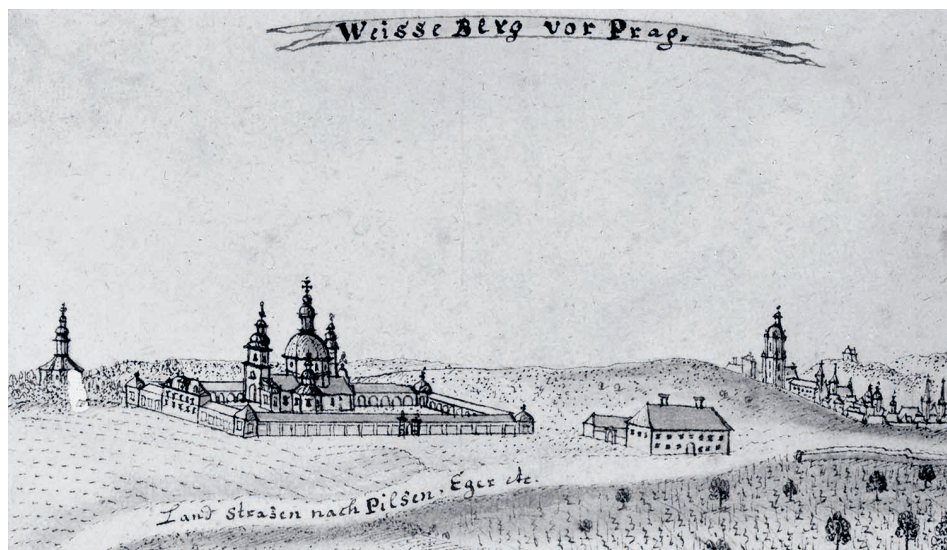 Weisse Berg vor Prag.
Land Straßen nach Pilsen, Eger etc.